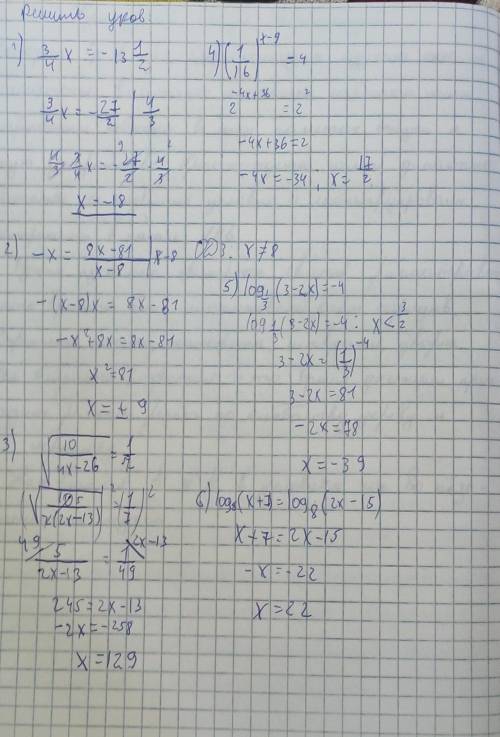 Решить уров
1) 3/4 x = -13 1/2
3/4 x = -27/2 | 4/3
4/3 · 3/4 x = -27/2 · 4/3
x = -18
2) -x = 8x-81/x-8 | x-8 ОДЗ. x≠8
-(x-8)x = 8x-81
-x²+8x=8x-81
x²=81
x=± 9
3) √10/4x-26 = 1/7
(√105/2(2x-13))² = (1/7)²
49 5/2x-13 = 1/49 2x-13
245=2x-13
-2x=-258
x=129
4) (1/16)^x-9 =4
2^-4x+36 = 2²
-4x+36=2
-4x=-34; x=17/2
5) log1/3(3-2x)=-4
log1/3(8-2x)=-4: x<3/2
3-2x=(1/3)^-4
3-2x=81
-2x=78
x=-39
6) log8(x+7)=log8(2x-15)
x+7=2x-15
-x=-22
x=22